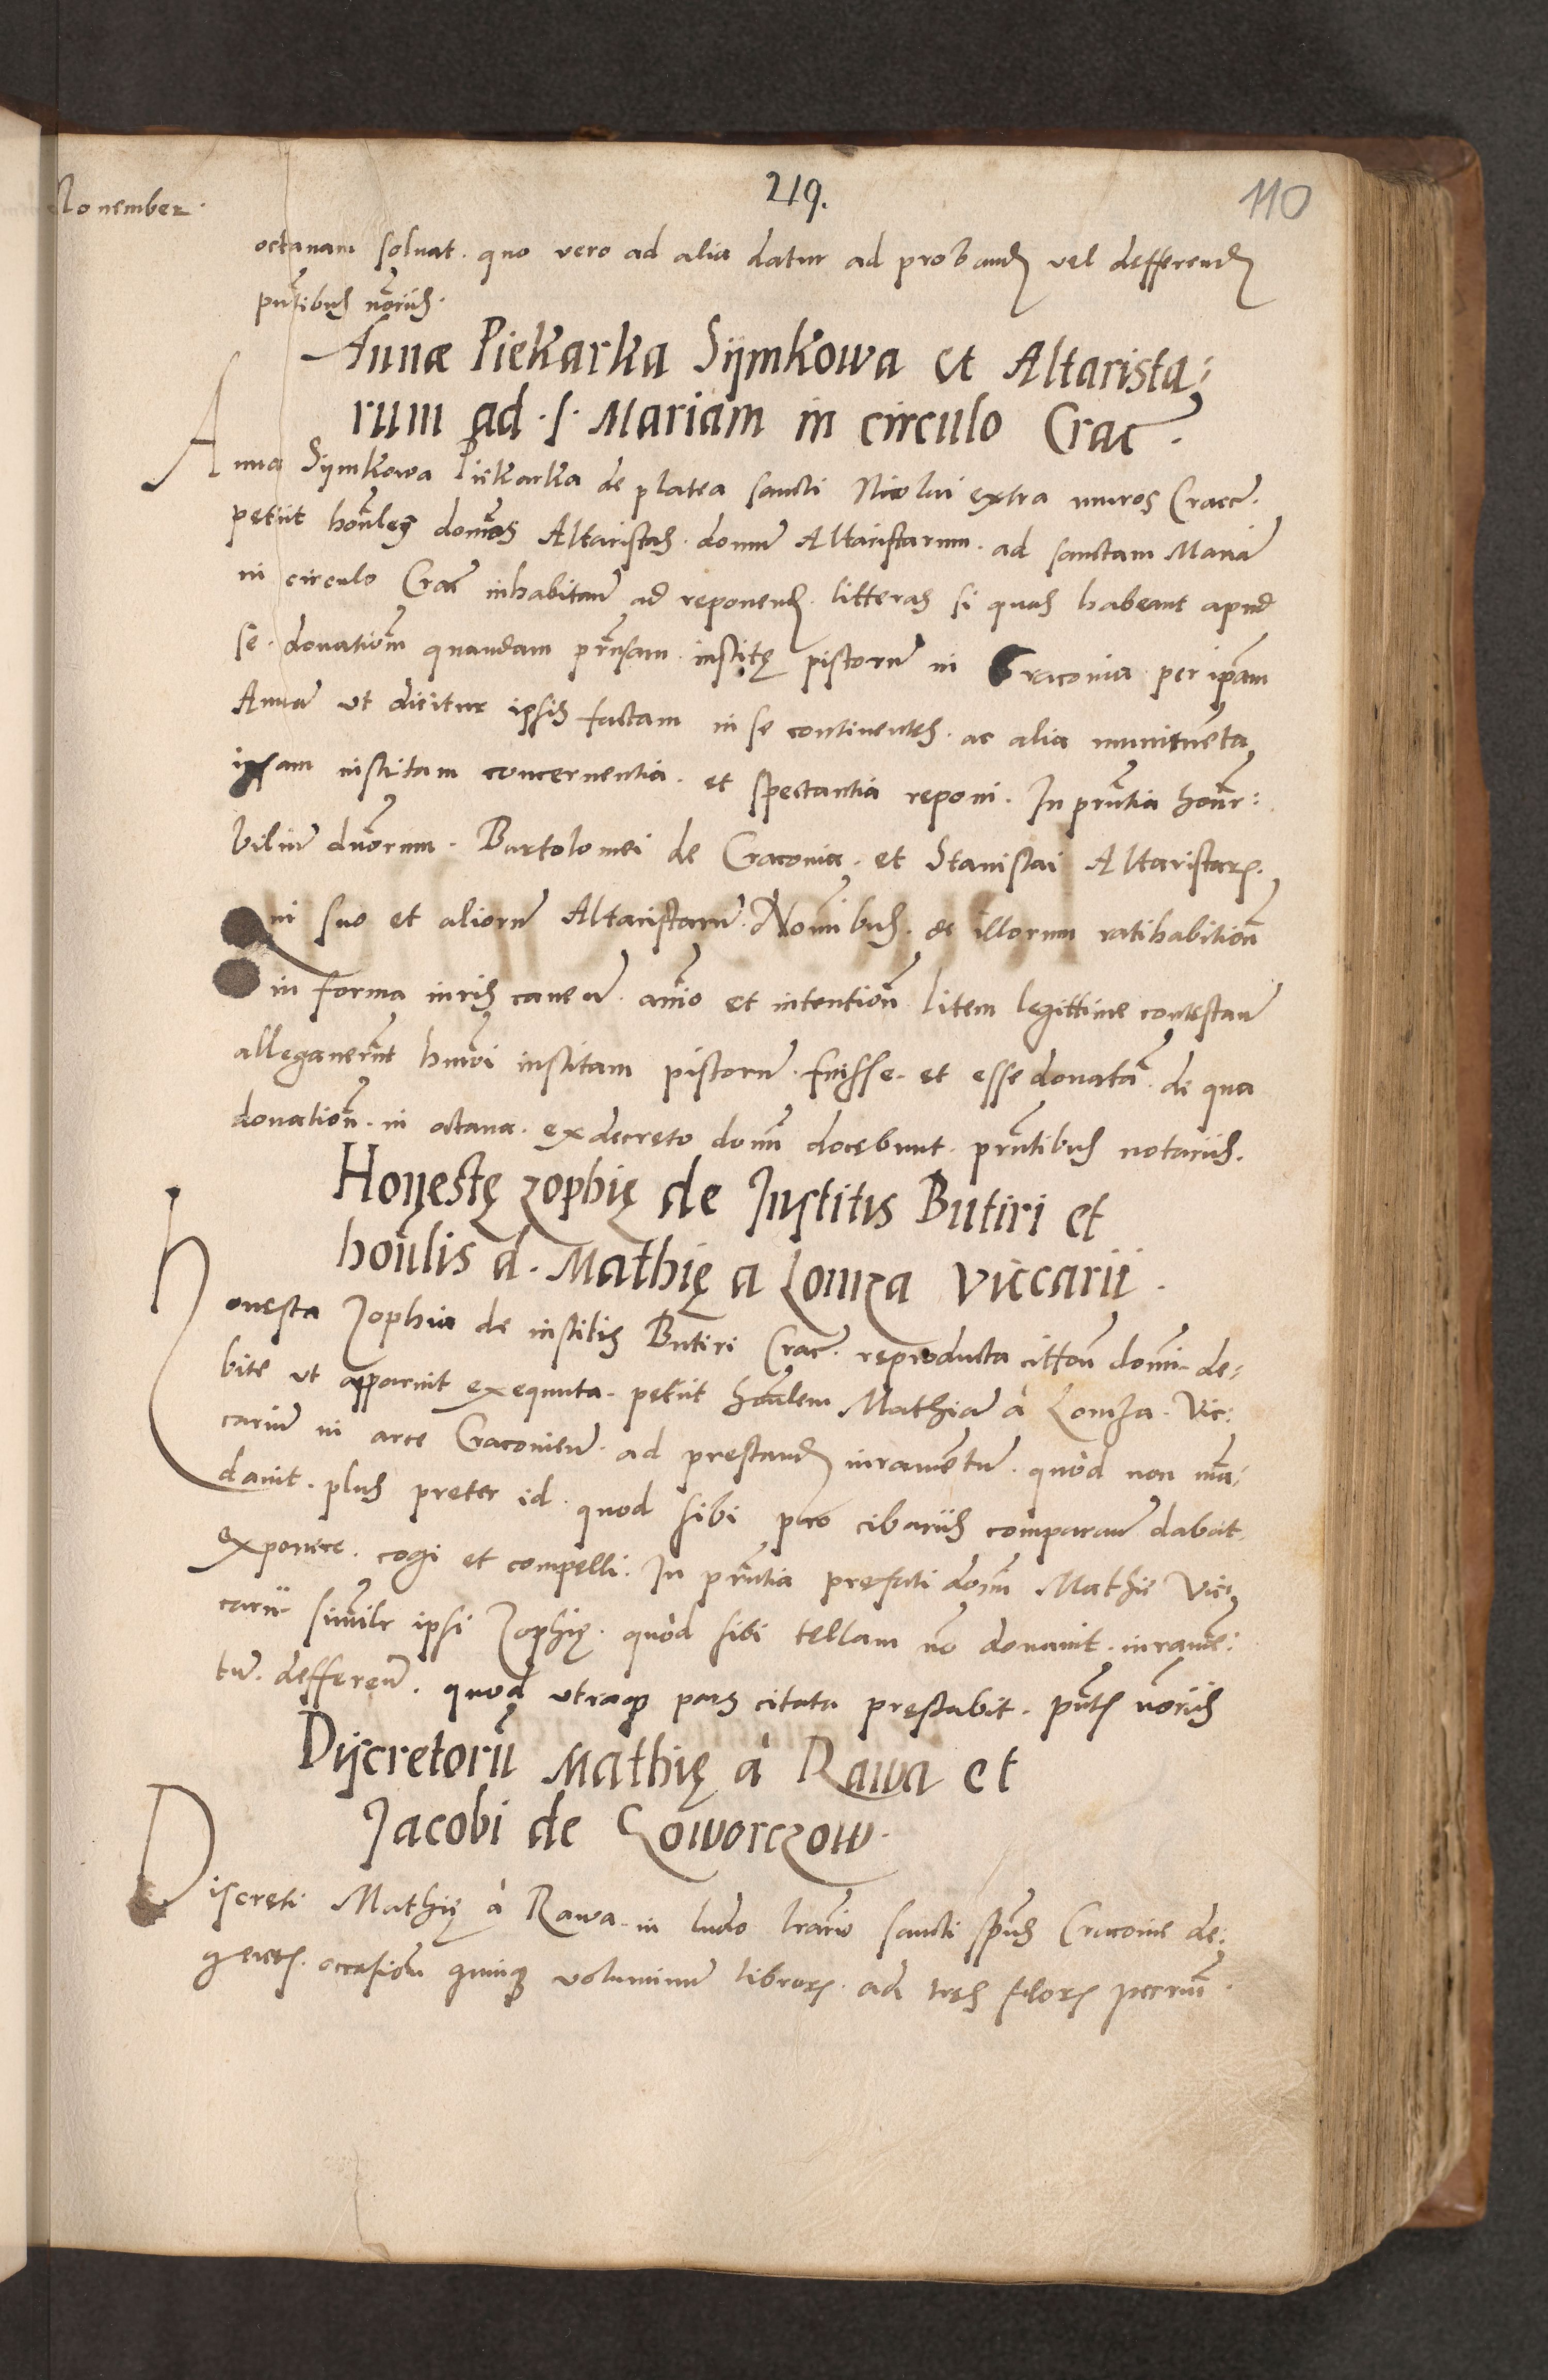 219.
110
Nouember.
octauam soluat. quo vero ad alia datur ad proband vel defferend
pñtibus nõriis.
Annæ Piekarka Sijmkowa et Altarista,
rum ad .s. Mariam in circulo Crac̃.
Anna Sijmkowa Piekarka de platea sancti Nicolai extra muros Cracc̃.
petiit honñles domños Altaristas. domũ Altaristarum. ad sanctam Mariã
in circulo Crac̃ inhabitañ ad reponend. litteras si quas habeant apud
se. donatioñm quandam prñsam institę pistorũ in Craconia per ip̃am
Annã ut dicitur ipsis factam in se continentes. ac alia munimẽta
ipsam institam concernentia. et spectantia reponi. In prñtia honr̃:
biliũ dñorum. Bartolomei de Craconia. et Stanislai Altaristar.
Qui suo et aliorũ Altaristarũ. Nomĩbus. de illorum ratihabitioñ
in forma iuris caueñ. añio et intentioñ litem legittime contestañ
allegauerũt hm̃oi institam pistorũ. fuisse. et esse donatã. de qua
donatioñ. in octaua. ex decreto domñ docebunt. prñtibus notariis.
Honestę zophię de Institis Butiri et
hoñlis d. Mathię a Lomza Viccarii.
Honesta Zophia de institis Butiri Crac̃. reproducta cittoñ domñi de,
bite ut apparuit exequuta. petiit hoñlem Mathiã à Lomza. Vic:
cariũ in arce Craconieñ. ad prestand iuramentũ. quòd non mã,
dauit. plus preter id. quod sibi pro cibariis comparañ dabat.
exponere. cogi et compelli. In prñtia prefati domñ Mathie Vic,
carii simil̃r ipsi Zophię. quòd sibi tellam nõ donauit. iuramẽ:
tũ. deffereñ. quod utraque pars citata prestabit. pñt. nõriis
Dijscretorũ Mathię à Rawa et
Jacobi de Goworczow.
Discreti Mathię à Rawa. in ludo l̃rario sancti sp̃us Cracouie de:
gent. occasioñ quinque voluminũ libror. ad tres flor. pecuñ.